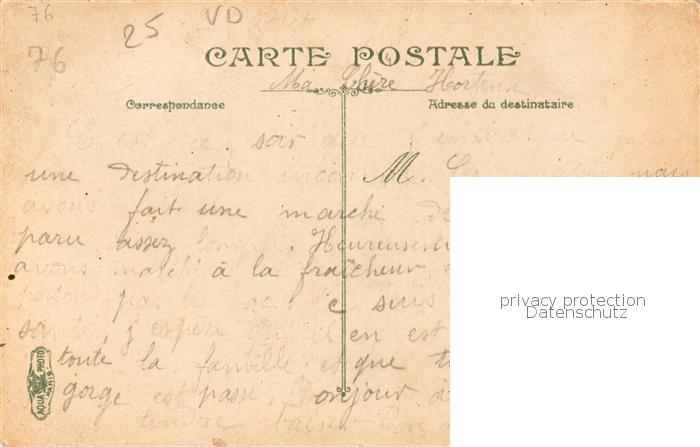 76
25 VD
76
CARTE POSTALE
Ma Chère Hortense
Correspondance
Adresse du destinataire
C'est ce soir que j'embarque
une destination M.
avons fait une marche de
paru assez longue. Heureusement
avons marché à la fraîcheur
portons pas le sac. Je suis
santé j'espère qu'il en est
toute la famille et que
gorge est passé. Bonjour à
tendre baiser
privacy protection
Datenschutz
AQUA PHOTO
PARIS